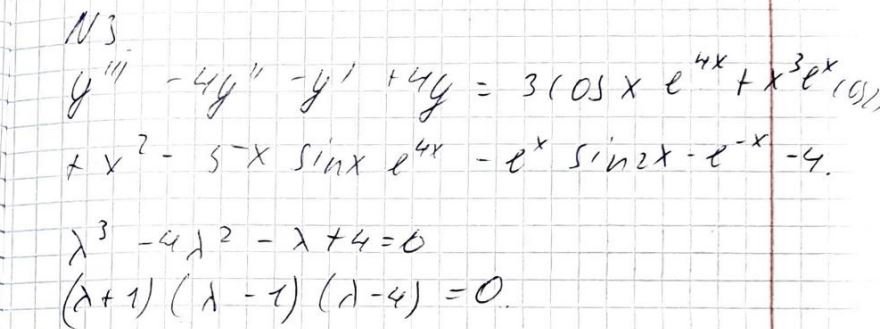 N3.
y''' - 4y'' - y' + 4y = 3 cos x e^{4x} + x^3 e^x cos
+ x^2 - 5^{-x} sin x e^{4x} - e^x sin 2x - e^{-x} - 4.
λ^3 - 4λ^2 - λ + 4 = 0
(λ + 1)(λ - 1)(λ - 4) = 0.